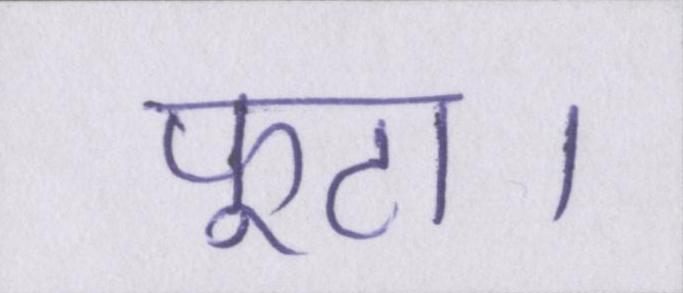 फूटा ।